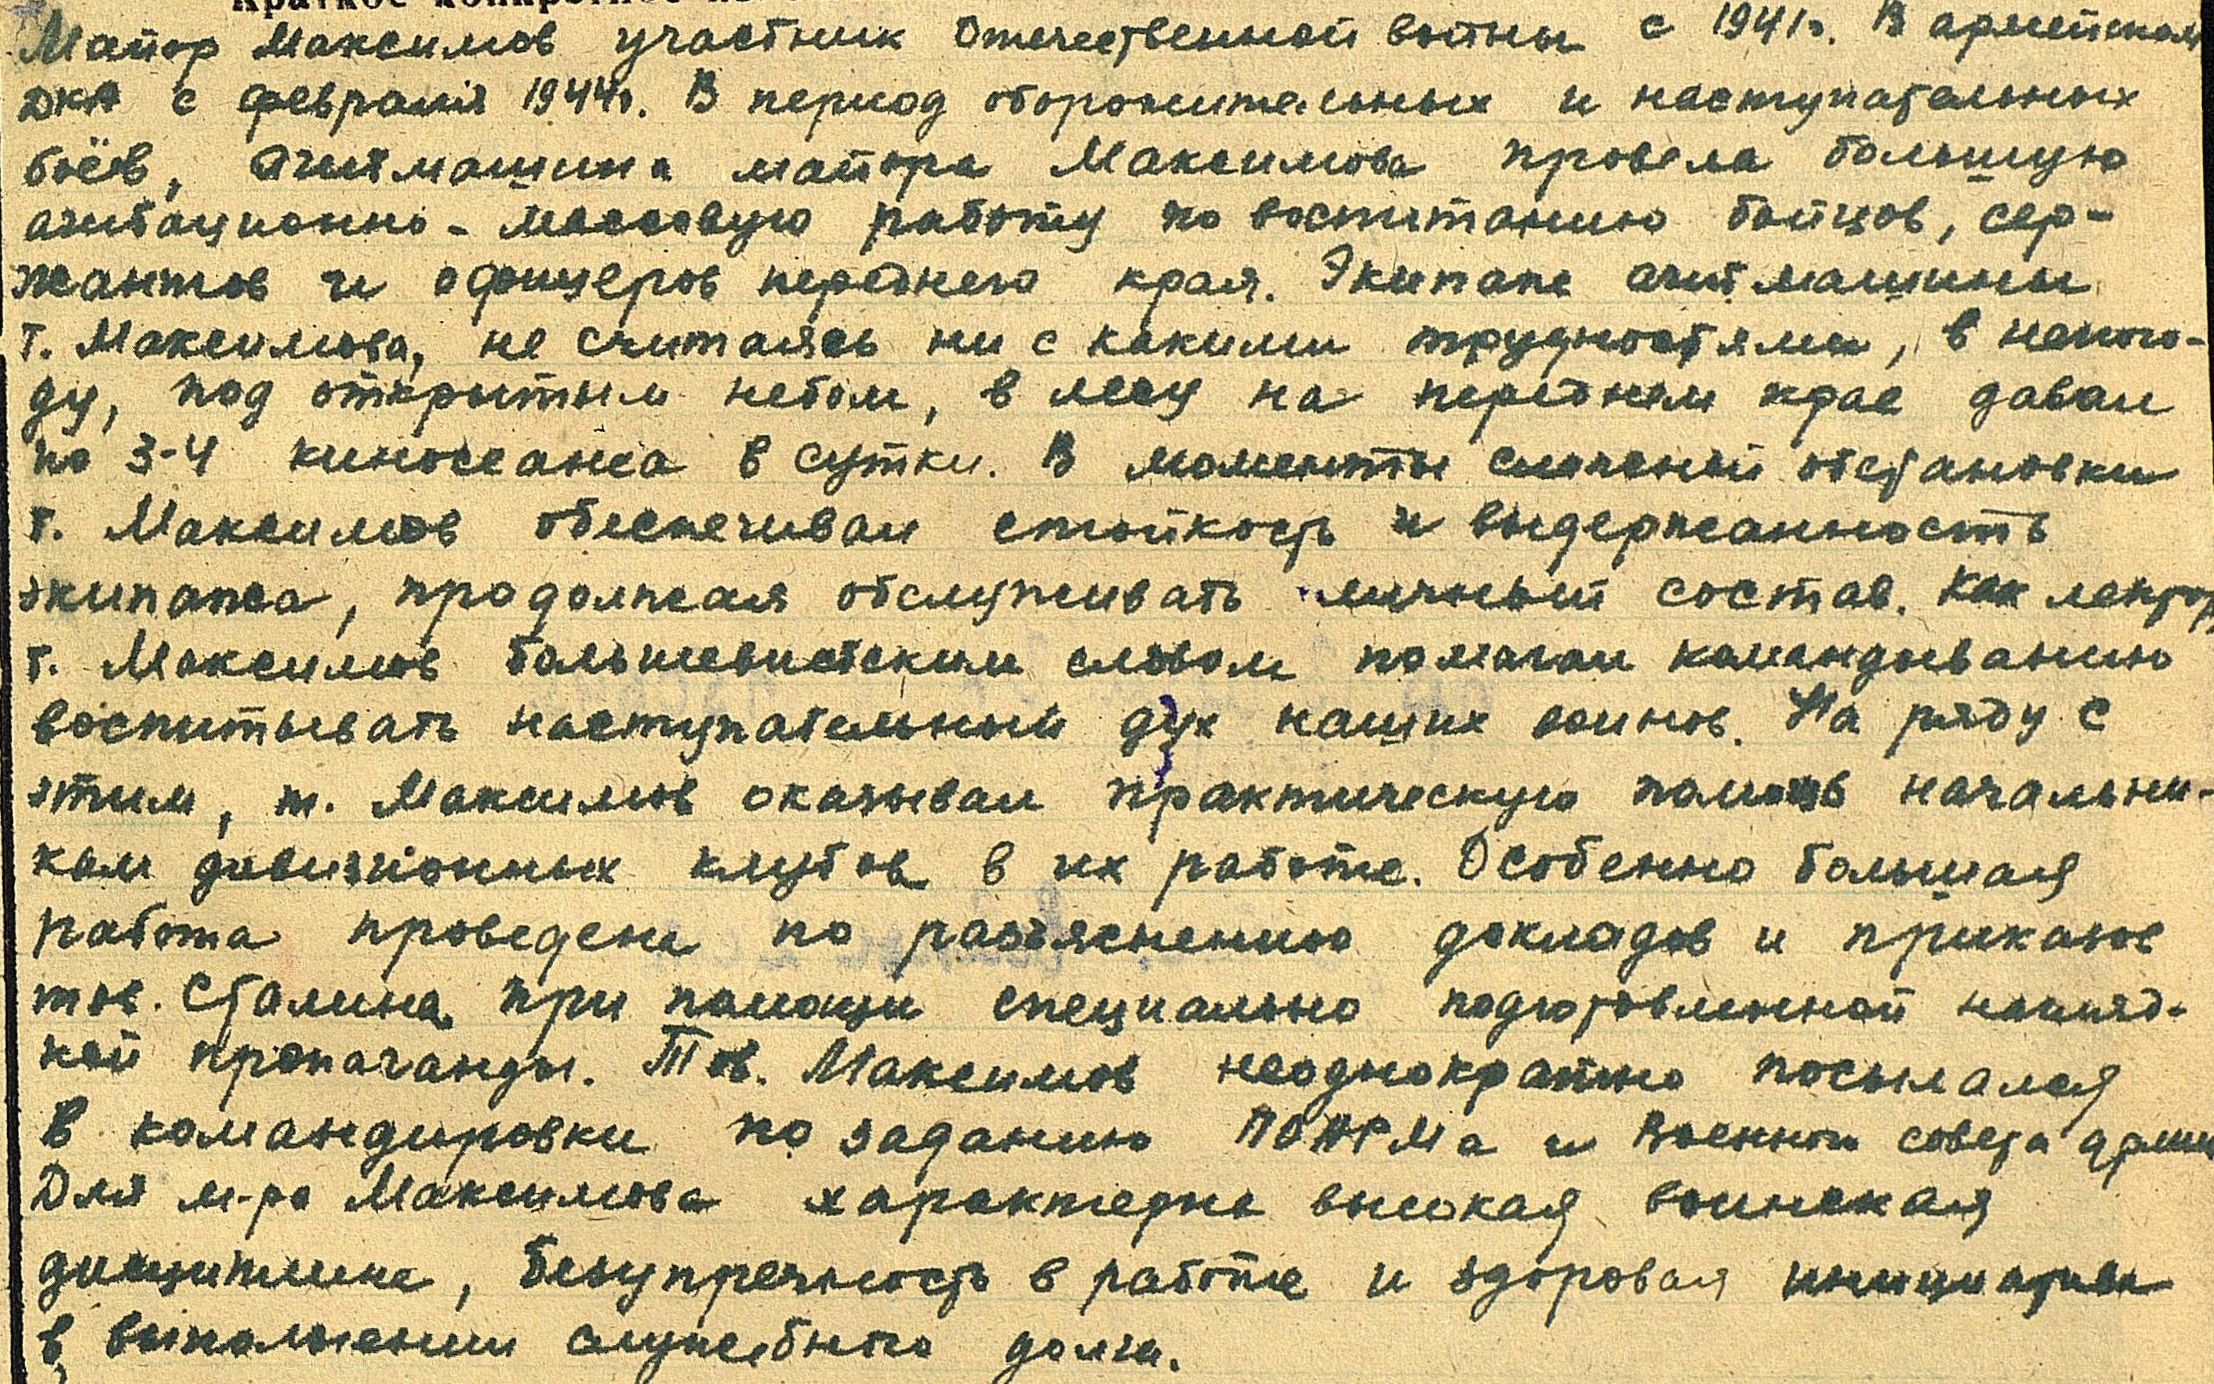 Майор Максимов участник Отечественной войны с 1941г. В армейском
ДКА с февраля 1944г. В период оборонительных и наступательных
боёв, агитмашина майора Максимова провела большую
агитационно-массовую работу по воспитанию бойцов, сер-
жантов и офицеров переднего края. Экипаж агитмашины
т. Максимова, не считаясь ни с какими трудностями, в непого-
ду, под открытым небом, в лесу на переднем крае давал
по 3-4 киносеанса в сутки. В моменты сложной обстановки
т. Максимов обеспечивал стойкость и выдержанность
экипажа, продолжая обслуживать личный состав. Как лектор
т. Максимов большевистским словом помогал командыванию
воспитывать наступательный дух наших воинов. На ряду с
этим, т. Максимов оказывал практическую помощь начальни-
кам дивизионных клубов в их работе. Особенно большая
работа проведена по разъяснению докладов и приказов
тов. Сталина при помощи специально подготовленной нагляд-
ной пропаганды. Тов. Максимов неоднократно посылался
в командировки по заданию ПОАРМа и Военного совета армии
Для м-ра Максимова характерна высокая воинская
дисциплина, безупречность в работе и здоровая инициатива
в выполнении служебного долга.